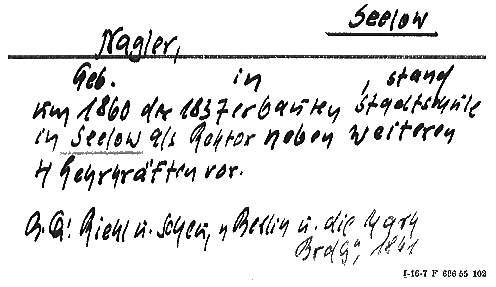 Seelow
Nagler,
Geb. in , stand
um 1860 der 1837 erbauten Stadtschule
in Seelow als Rektor neben weiteren
4 Lehrkräften vor.
B. Qu: Riehl u. Scheu, "Berlin u. die Mark
Brdg", 1861
I-16-7 F 686 55 102